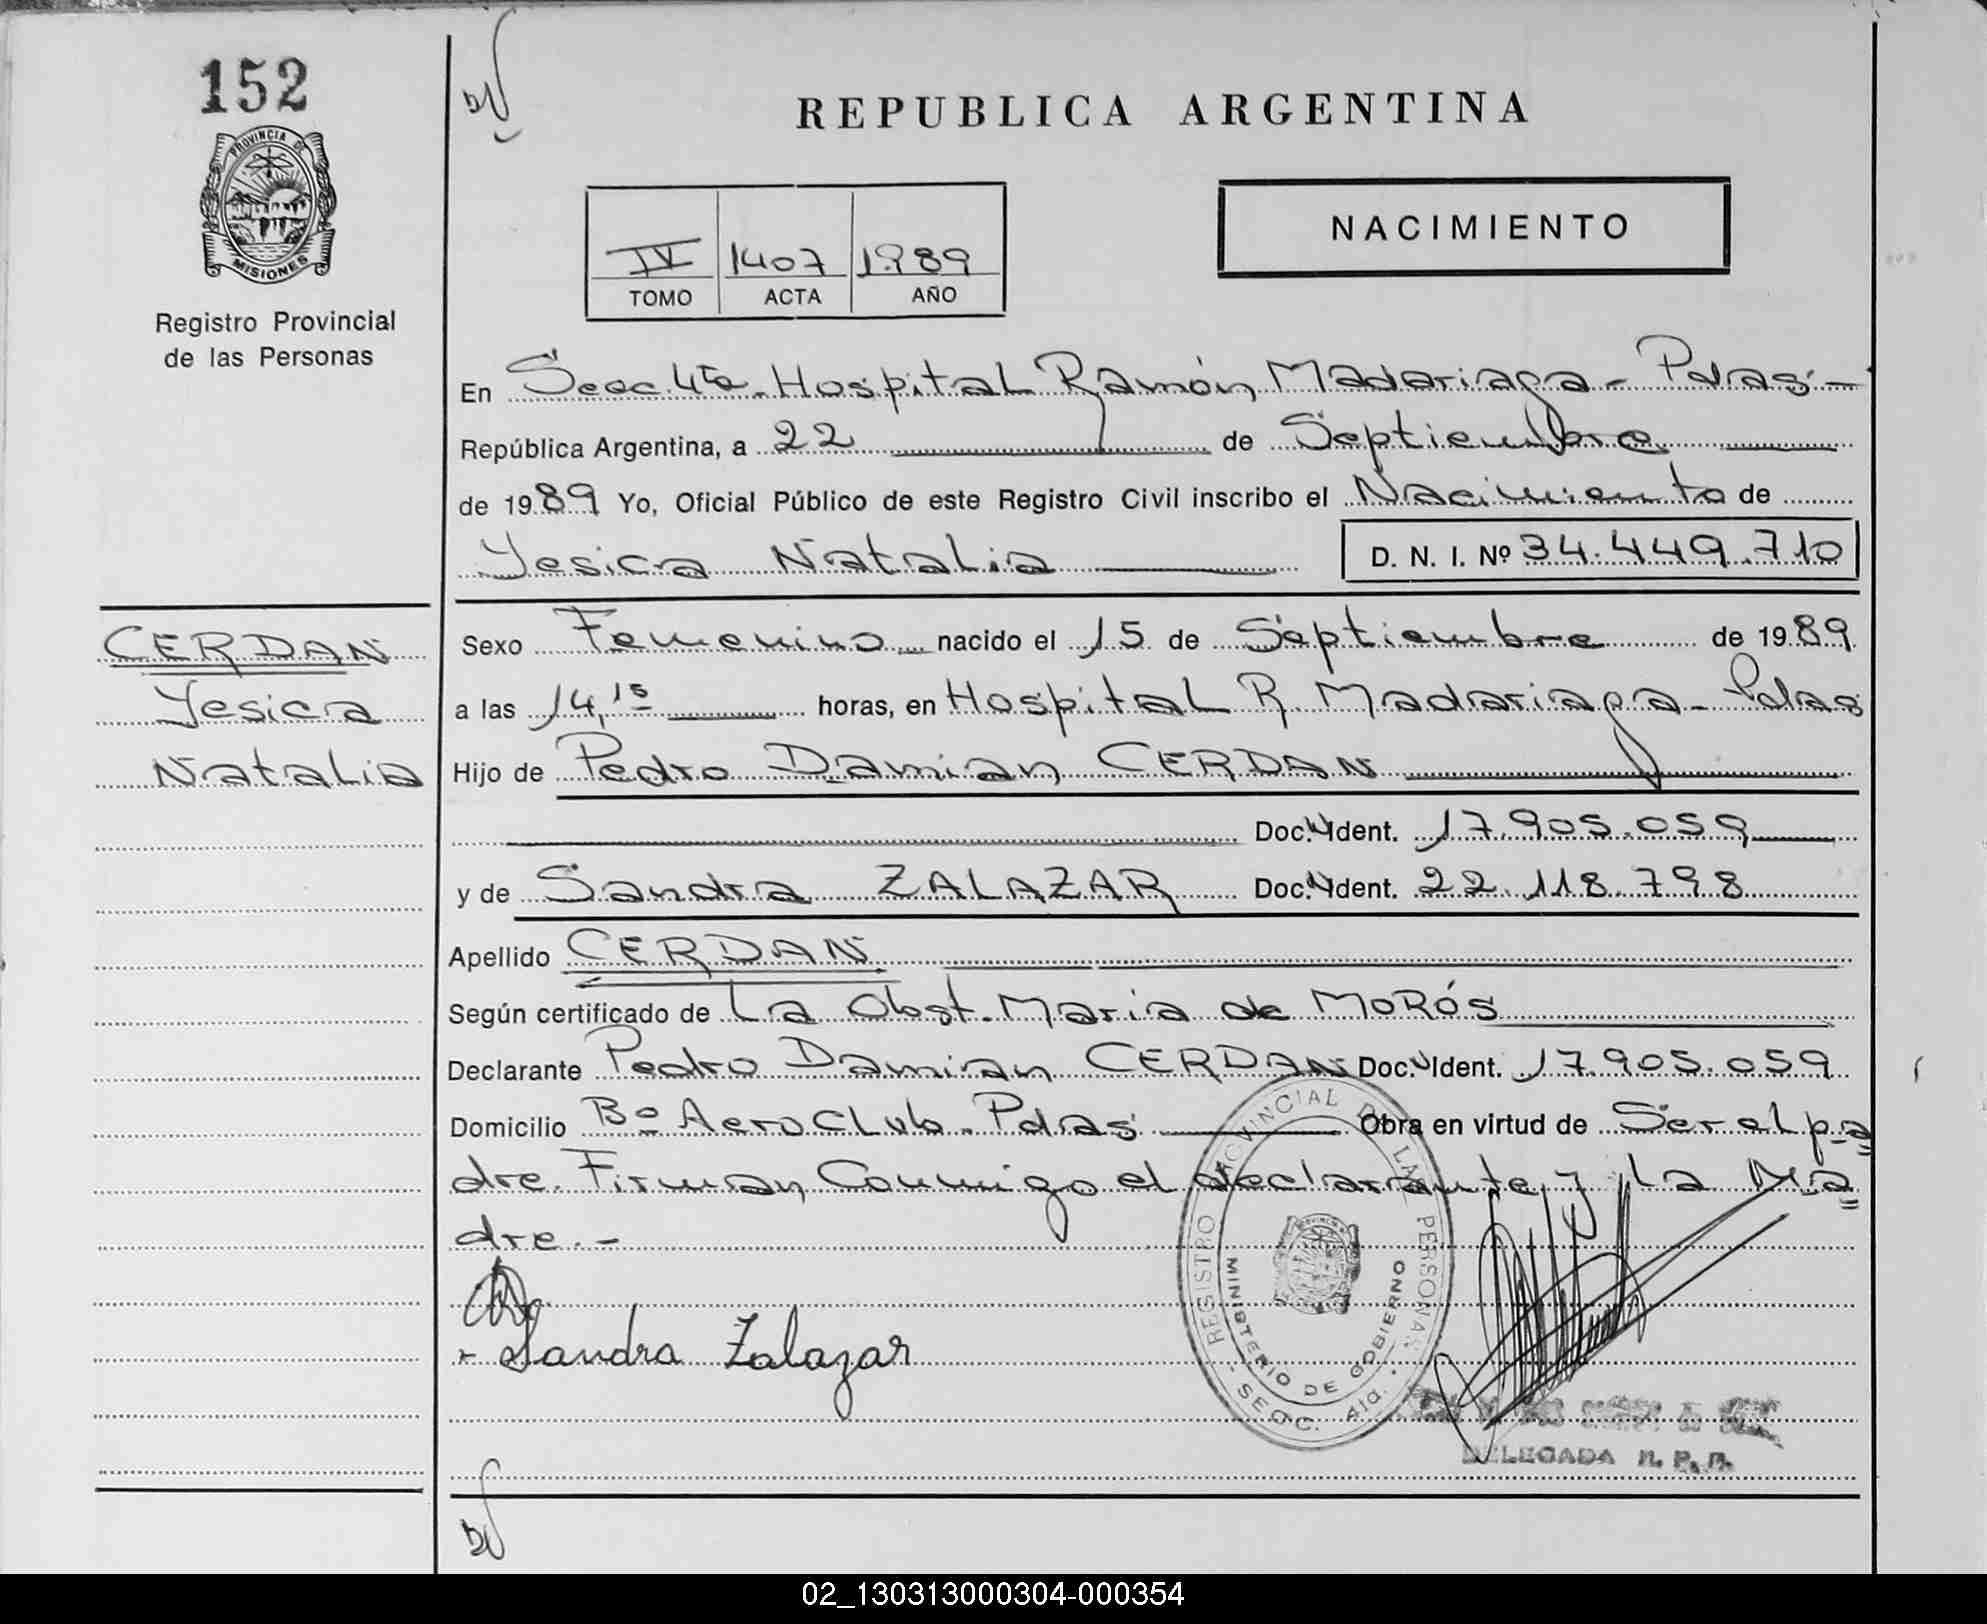 152
PROVINCIA DE
MISIONES
Registro Provincial
de las Personas
REPUBLICA ARGENTINA
NACIMIENTO
IV 1407 1989
TOMO ACTA AÑO
En Secc. 4ta. Hospital Ramón Madariaga - Pdas. -
República Argentina, a 22 de Septiembre
de 1989 Yo, Oficial Público de este Registro Civil inscribo el Nacimiento de
Yesica Natalia D. N. I. Nº 34.449.710
CERDAN
Yesica
Natalia
Sexo Femenino nacido el 15 de Septiembre de 1989
a las 14,15 horas, en Hospital R. Madariaga - Pdas
Hijo de Pedro Damian CERDAN
Doc. Ident. 17.905.059
y de Sandra ZALAZAR Doc. Ident. 22.118.798
Apellido CERDAN
Según certificado de La Obst. Maria de MORÓS
Declarante Pedro Damian CERDAN Doc. Ident. 17.905.059
Domicilio Bº Aero Club. Pdas Obra en virtud de Ser el pa
dre. Firman Conmigo el declarante y la Ma
dre. -
Sandra Zalazar
REGISTRO PROVINCIAL DE LAS PERSONAS
MINISTERIO DE GOBIERNO
SECC. 4ta.
DELEGADA R. P. P.
02_130313000304-000354